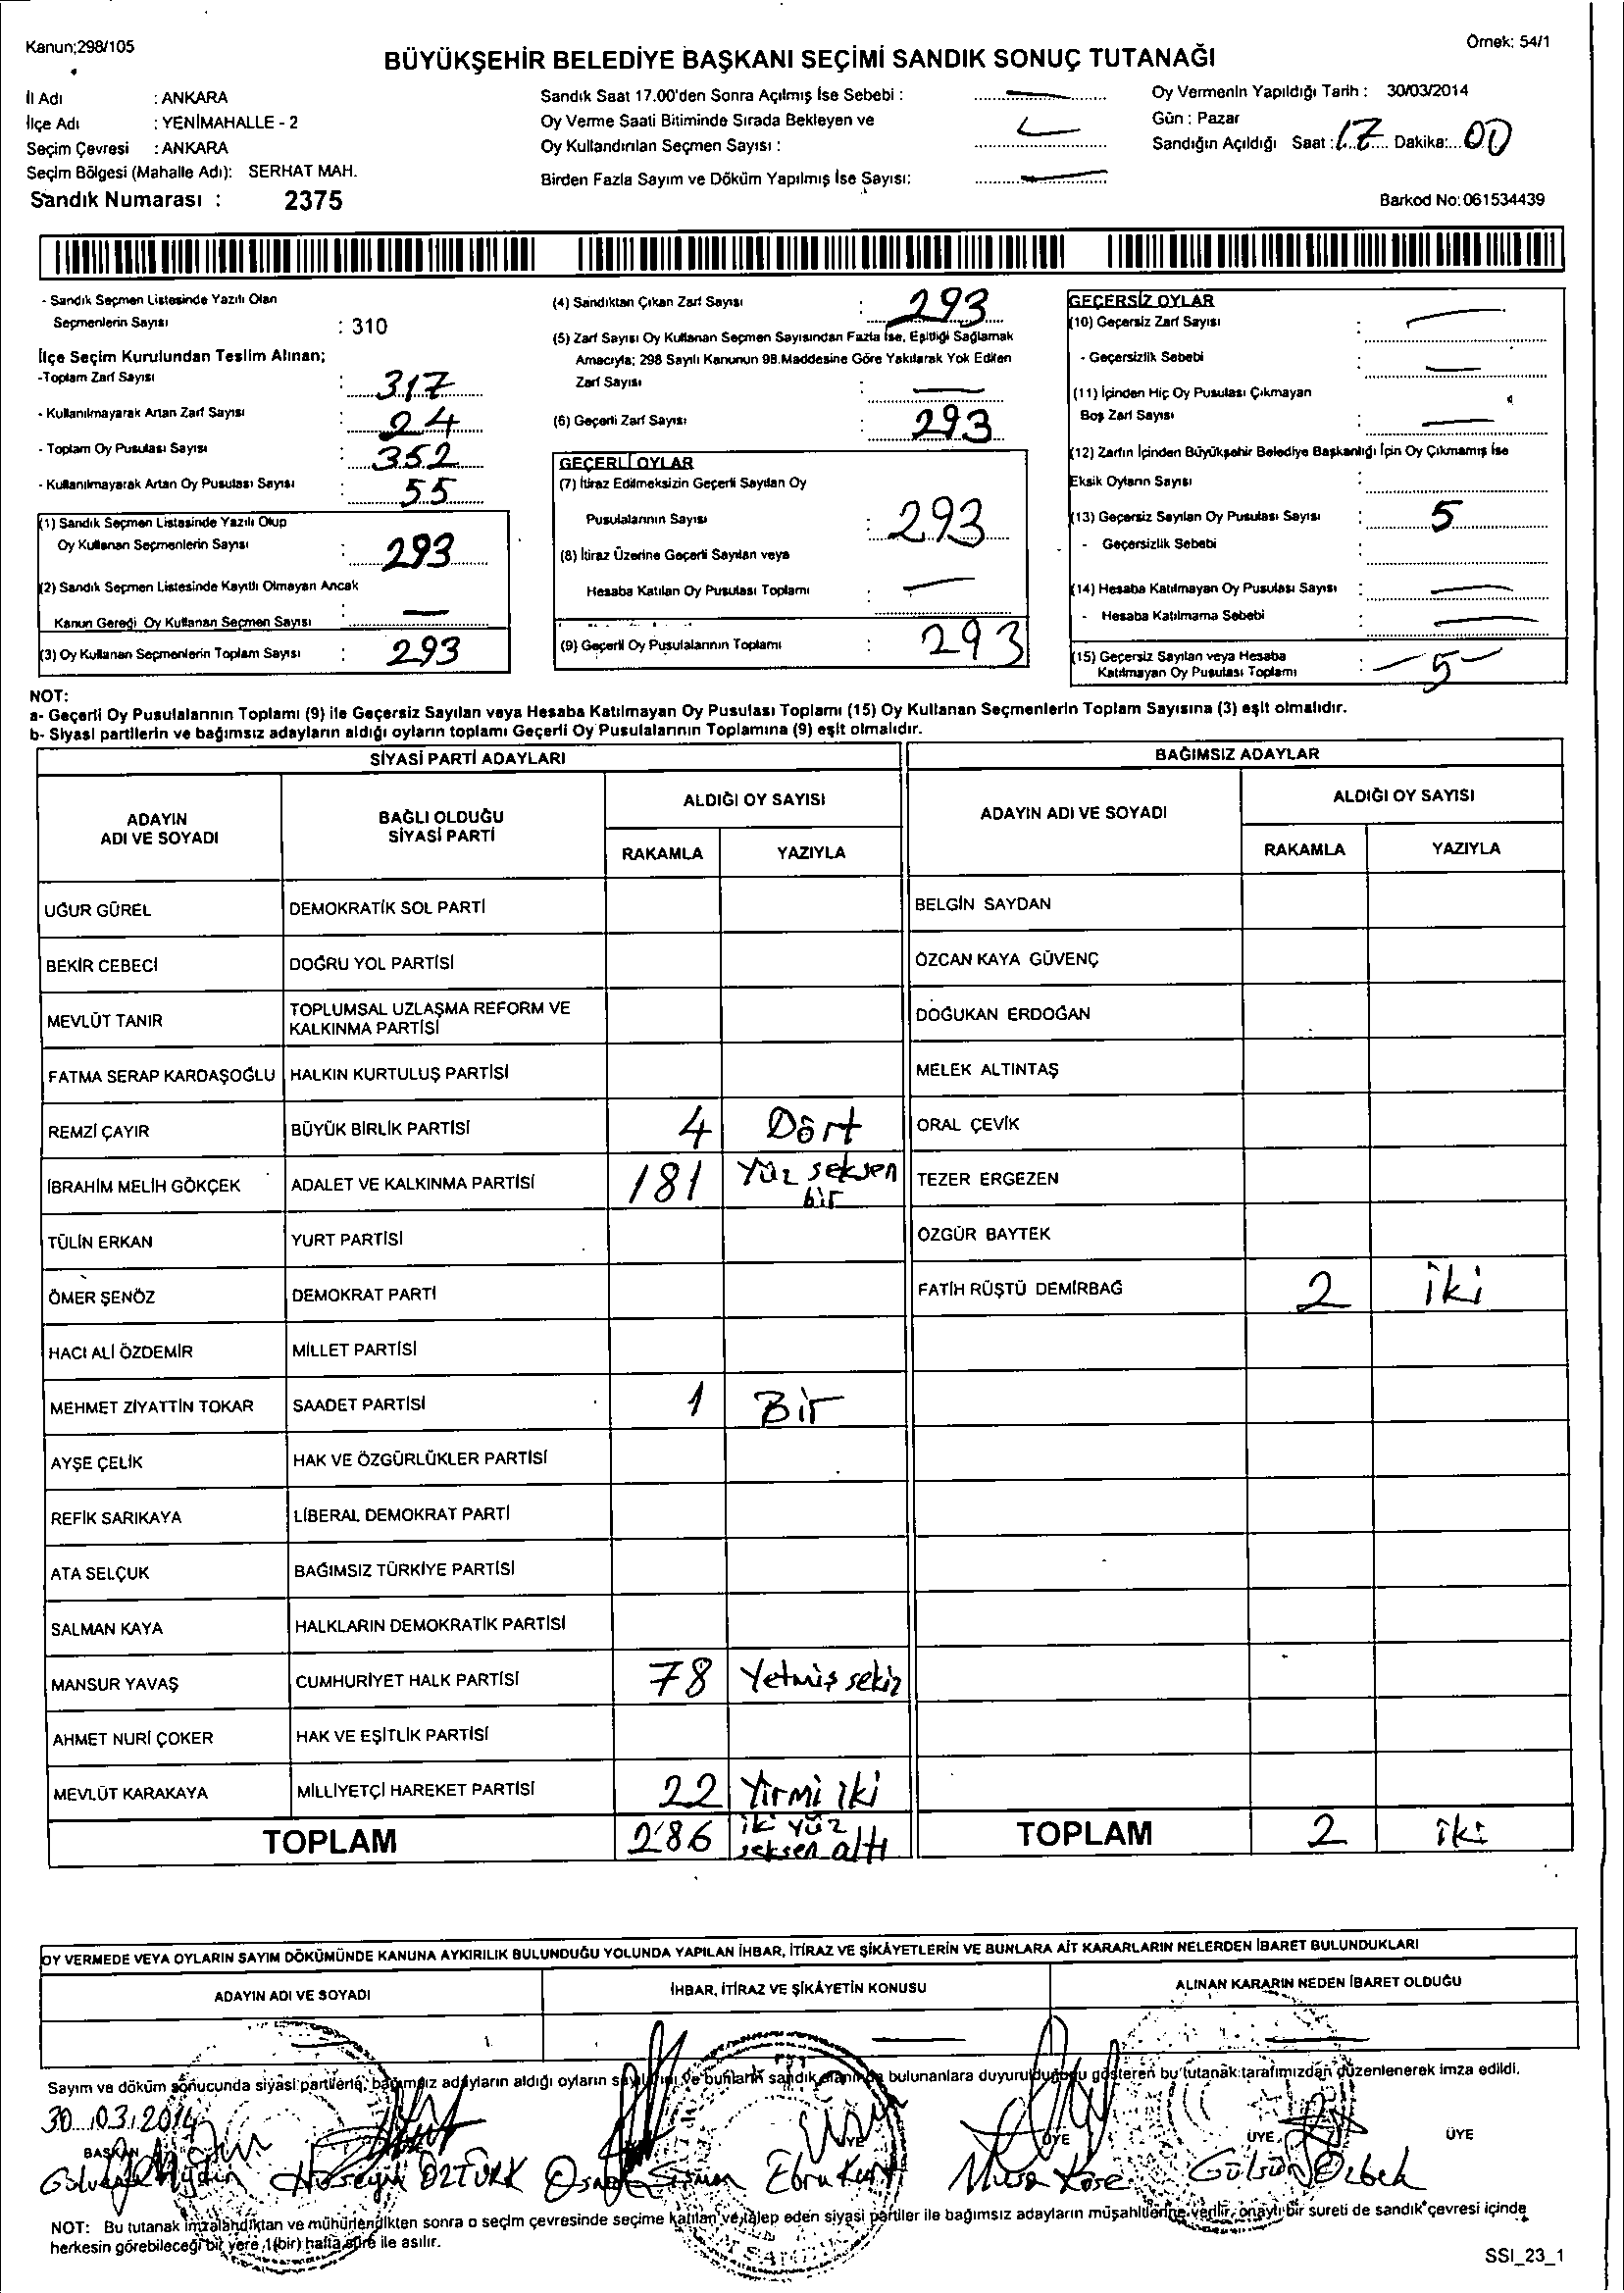 Kanun;298/105
Örnek: 54/1
BÜYÜKŞEHİR BELEDİYE BAŞKANI SEÇİMİ SANDIK SONUÇ TUTANAĞI
İl Adı : ANKARA
İlçe Adı : YENİMAHALLE - 2
Seçim Çevresi : ANKARA
Seçim Bölgesi (Mahalle Adı): SERHAT MAH.
Sandık Numarası : 2375
Sandık Saat 17.00'den Sonra Açılmış İse Sebebi :
Oy Verme Saati Bitiminde Sırada Bekleyen ve
Oy Kullandırılan Seçmen Sayısı :
Birden Fazla Sayım ve Döküm Yapılmış İse Sayısı:
Oy Vermenin Yapıldığı Tarih : 30/03/2014
Gün : Pazar
Sandığın Açıldığı Saat : 17 Dakika: 00
Barkod No: 061534439
- Sandık Seçmen Listesinde Yazılı Olan
Seçmenlerin Sayısı : 310
İlçe Seçim Kurulundan Teslim Alınan;
-Toplam Zarf Sayısı : 317
- Kullanılmayarak Artan Zarf Sayısı : 24
- Toplam Oy Pusulası Sayısı : 352
- Kullanılmayarak Artan Oy Pusulası Sayısı : 55
(1) Sandık Seçmen Listesinde Yazılı Olup
Oy Kullanan Seçmenlerin Sayısı : 293
(2) Sandık Seçmen Listesinde Kayıtlı Olmayan Ancak
Kanun Gereği Oy Kullanan Seçmen Sayısı : —
(3) Oy Kullanan Seçmenlerin Toplam Sayısı : 293
(4) Sandıktan Çıkan Zarf Sayısı : 293
(5) Zarf Sayısı Oy Kullanan Seçmen Sayısından Fazla İse, Eşitliği Sağlamak
Amacıyla; 298 Sayılı Kanunun 98.Maddesine Göre Yakılarak Yok Edilen
Zarf Sayısı : —
(6) Geçerli Zarf Sayısı : 293
GEÇERLİ OYLAR
(7) İtiraz Edilmeksizin Geçerli Sayılan Oy
Pusulalarının Sayısı : 293
(8) İtiraz Üzerine Geçerli Sayılan veya
Hesaba Katılan Oy Pusulası Toplamı : —
(9) Geçerli Oy Pusulalarının Toplamı : 293
GEÇERSİZ OYLAR
(10) Geçersiz Zarf Sayısı : —
- Geçersizlik Sebebi : —
(11) İçinden Hiç Oy Pusulası Çıkmayan
Boş Zarf Sayısı : —
(12) Zarfın İçinden Büyükşehir Belediye Başkanlığı İçin Oy Çıkmamış İse
Eksik Oyların Sayısı :
(13) Geçersiz Sayılan Oy Pusulası Sayısı : 5
- Geçersizlik Sebebi :
(14) Hesaba Katılmayan Oy Pusulası Sayısı : —
- Hesaba Katılmama Sebebi : —
(15) Geçersiz Sayılan veya Hesaba
Katılmayan Oy Pusulası Toplamı : — 5 —
NOT:
a- Geçerli Oy Pusulalarının Toplamı (9) ile Geçersiz Sayılan veya Hesaba Katılmayan Oy Pusulası Toplamı (15) Oy Kullanan Seçmenlerin Toplam Sayısına (3) eşit olmalıdır.
b- Siyasi partilerin ve bağımsız adayların aldığı oyların toplamı Geçerli Oy Pusulalarının Toplamına (9) eşit olmalıdır.
SİYASİ PARTİ ADAYLARI
ADAYIN
ADI VE SOYADI
BAĞLI OLDUĞU
SİYASİ PARTİ
ALDIĞI OY SAYISI
RAKAMLA YAZIYLA
UĞUR GÜREL DEMOKRATİK SOL PARTİ
BEKİR CEBECİ DOĞRU YOL PARTİSİ
MEVLÜT TANIR TOPLUMSAL UZLAŞMA REFORM VE
KALKINMA PARTİSİ
FATMA SERAP KARDAŞOĞLU HALKIN KURTULUŞ PARTİSİ
REMZİ ÇAYIR BÜYÜK BİRLİK PARTİSİ 4 Dört
İBRAHİM MELİH GÖKÇEK ADALET VE KALKINMA PARTİSİ 181 Yüz seksen
bir
TÜLİN ERKAN YURT PARTİSİ
ÖMER ŞENÖZ DEMOKRAT PARTİ
HACI ALİ ÖZDEMİR MİLLET PARTİSİ
MEHMET ZİYATTİN TOKAR SAADET PARTİSİ 1 Bir
AYŞE ÇELİK HAK VE ÖZGÜRLÜKLER PARTİSİ
REFİK SARIKAYA LİBERAL DEMOKRAT PARTİ
ATA SELÇUK BAĞIMSIZ TÜRKİYE PARTİSİ
SALMAN KAYA HALKLARIN DEMOKRATİK PARTİSİ
MANSUR YAVAŞ CUMHURİYET HALK PARTİSİ 78 Yetmiş sekiz
AHMET NURİ ÇOKER HAK VE EŞİTLİK PARTİSİ
MEVLÜT KARAKAYA MİLLİYETÇİ HAREKET PARTİSİ 22 Yirmi iki
TOPLAM 286 iki yüz
seksen altı
BAĞIMSIZ ADAYLAR
ADAYIN ADI VE SOYADI
ALDIĞI OY SAYISI
RAKAMLA YAZIYLA
BELGİN SAYDAN
ÖZCAN KAYA GÜVENÇ
DOĞUKAN ERDOĞAN
MELEK ALTINTAŞ
ORAL ÇEVİK
TEZER ERGEZEN
ÖZGÜR BAYTEK
FATİH RÜŞTÜ DEMİRBAĞ 2 iki
TOPLAM 2 iki
OY VERMEDE VEYA OYLARIN SAYIM DÖKÜMÜNDE KANUNA AYKIRILIK BULUNDUĞU YOLUNDA YAPILAN İHBAR, İTİRAZ VE ŞİKÂYETLERİN VE BUNLARA AİT KARARLARIN NELERDEN İBARET BULUNDUKLARI
ADAYIN ADI VE SOYADI İHBAR, İTİRAZ VE ŞİKÂYETİN KONUSU ALINAN KARARIN NEDEN İBARET OLDUĞU
Sayım ve döküm sonucunda siyasi partilerle, bağımsız adayların aldığı oyların sayıldığını ve bunların sandık alanında bulunanlara duyurulduğunu gösteren bu tutanak tarafımızdan düzenlenerek imza edildi.
30.03.2014
BAŞKAN ÜYE ÜYE ÜYE ÜYE
Hüseyin ÖZTÜRK Ebru Kurt Musa Köse Gülsün Özbek
NOT: Bu tutanak imzalandıktan ve mühürlendikten sonra o seçim çevresinde seçime katılan ve talep eden siyasi partiler ile bağımsız adayların müşahitlerine verilir, onaylı bir sureti de sandık çevresi içinde
herkesin görebileceği bir yere 1 (bir) hafta süre ile asılır.
SSI_23_1